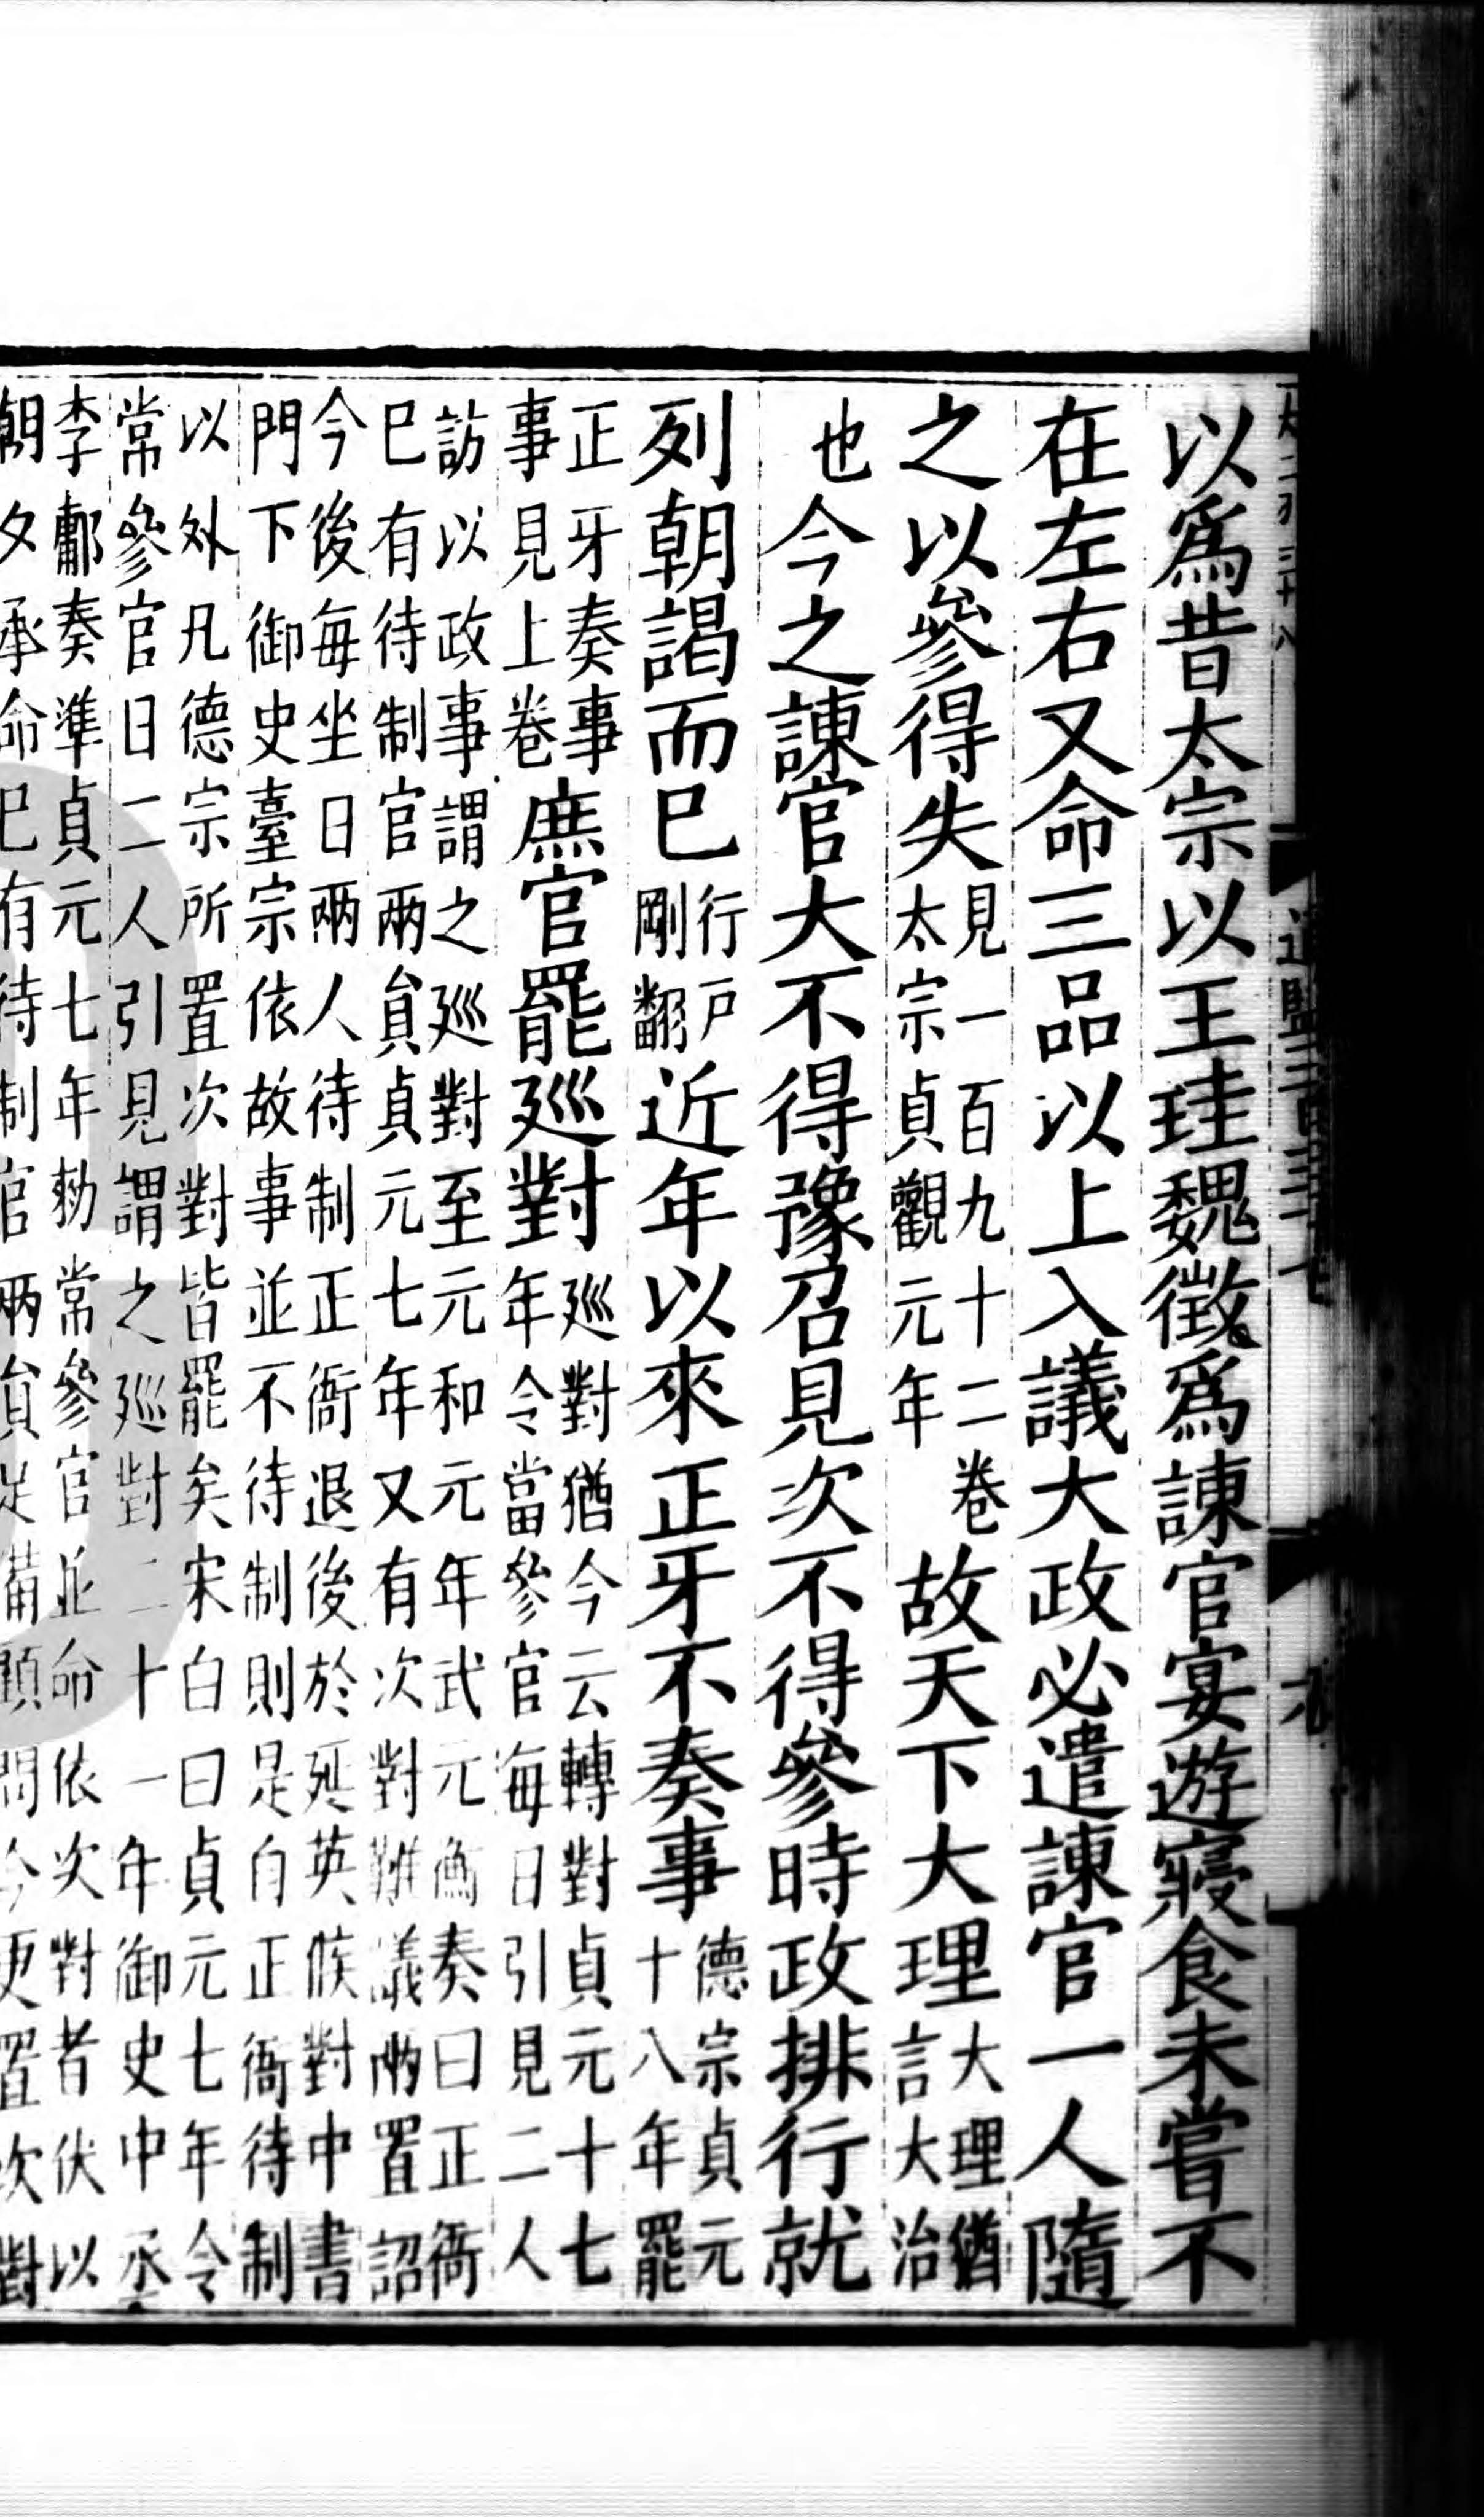 通鑑二百三十七
以爲昔太宗以王珪魏徵爲諫官宴遊寢食未嘗不
在左右又命三品以上入議大政必遣諫官一人隨
之以參得失見一百九十二卷太宗貞觀元年故天下大理大理猶言大治
也今之諫官大不得豫召見次不得參時政排行就
列朝謁而已行戶剛翻近年以來正牙不奏事德宗貞元十八年罷
正牙奏事事見上卷庶官罷巡對巡對猶今云轉對貞元十七年令當參官每日引見二人
訪以政事謂之巡對至元和元年武元衡奏曰正衙
已有待制官兩員貞元七年又有次對難議兩置詔
今後每坐日兩人待制正衙退後於延英候對中書
門下御史臺宗依故事並不待制則是自正衙待制
以外凡德宗所置次對皆罷矣宋白曰貞元七年令
常參官日二人引見謂之巡對二十一年御史中丞
李鄘奏準貞元七年勑常參官並命依次對者伏以
朝夕承命已有待制官兩員足備顧問今更置次對